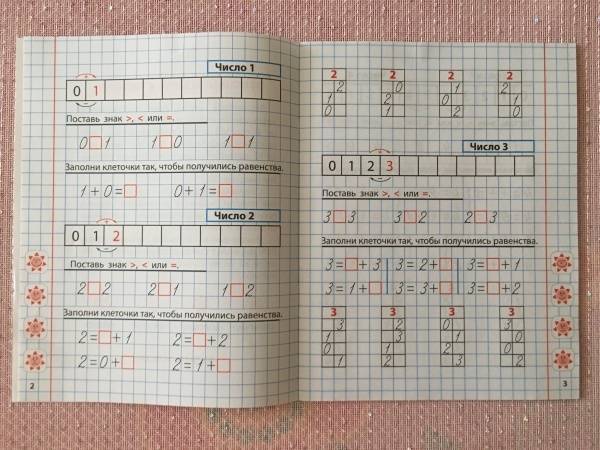 Число 1
0 1
Поставь знак >, < или =.
0□1 1□0 1□1
Заполни клеточки так, чтобы получились равенства.
1+0=□ 0+1=□
Число 2
0 1 2
Поставь знак >, < или =.
2□2 2□1 1□2
Заполни клеточки так, чтобы получились равенства.
2=□+1 2=□+2
2=0+□ 2=1+□
2
2 2 2 2
2 0 1
1 2 0 1
0 1 2 0
Число 3
0 1 2 3
Поставь знак >, < или =.
3□3 3□2 2□3
Заполни клеточки так, чтобы получились равенства.
3=□+3 3=2+□ 3=□+1
3=1+□ 3=3+□ 3=□+2
3 3 3 3
3 2 0 3
1 3 1 0
0 0 2 0
1 2 3 2
3